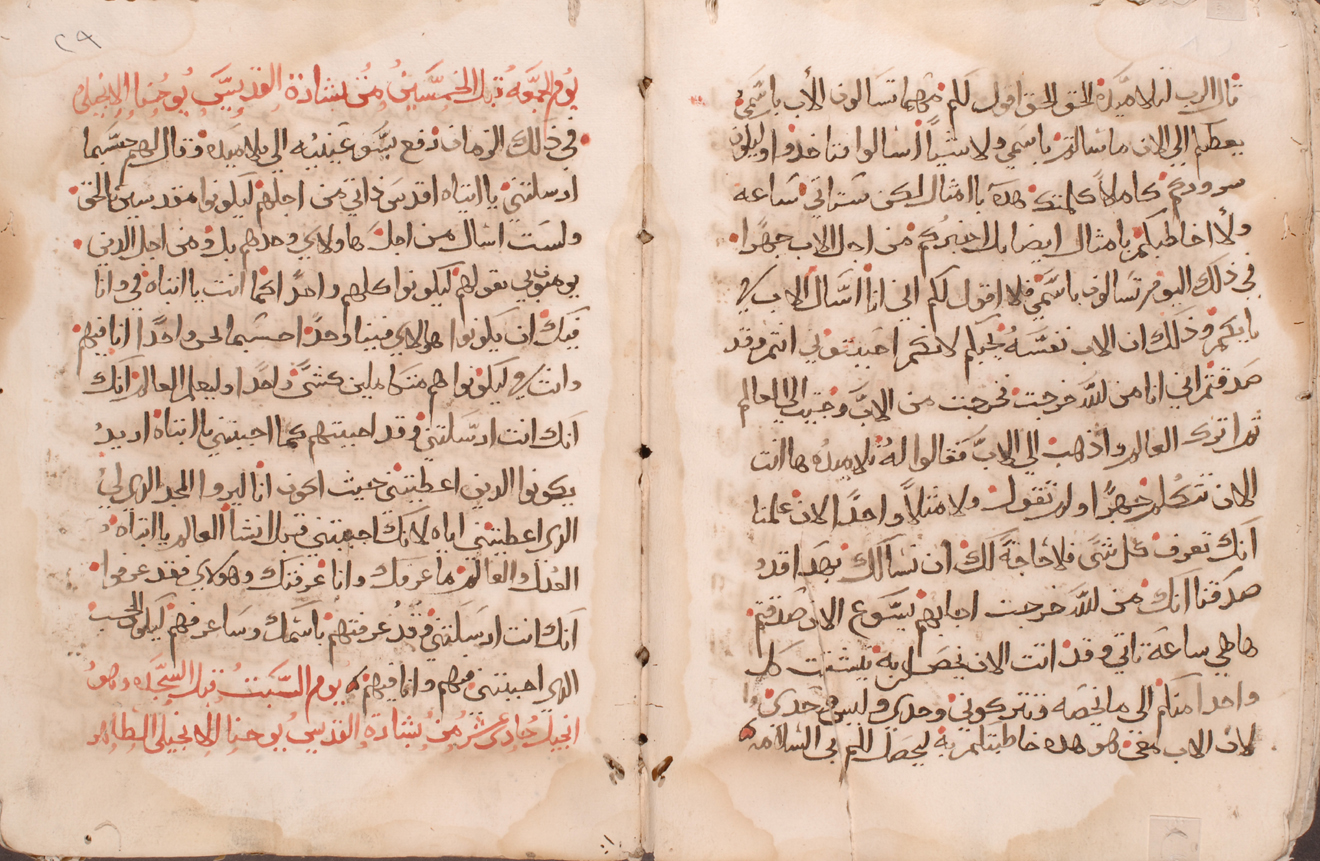 قال الرب لتلاميده الحق الحق اقول لكم مهما تسالون الأب باسمي
يعطيكم الي الان ما سالتم باسمي ولا شياً اسالوا فتاخدوا وليكون
سروركم كاملاً كلمتكم هده باامثال لكن ستاتي ساعه
ولا اخاطبكم بامثال ايضا بل اخبركم من اجل الاب جهرًا
في ذلك اليوم تسالون باسمي فلا اقول لكم اني انا اسال الاب في
بابكم وذلك ان الاب نفسه يحبكم لانكم احببتوني انتم وقد
صدقتم اني انا من الله خرجت خرجت من الاب وجيت الي العالم
ثم اترك العالم واذهب الي الاب فقالوا له تلاميده ها انت
الان تتكلم جهرًا ولم تقول ولا مثلاً واحدًا الان علمنا
انك تعرف كل شي فلا حاجة لك ان نسالك بهدا قد
صدقنا انك من الله خرجت اجابهم يسوع الان صدقتم
ها هي ساعة تاتي وقد اتت الان يتشتت كل
واحدا منكم الي ما يخصه وتتركوني وحدي وليس وحدي
لان الاب معي هو هده خاطبتكم به ليحصل لكم بي السلامه
٢٩
يوم الجمعة قبل الخمسين من بشارة القديس يوحنا الانجيلي
في ذلك الزمان رفع يسوع عينيه الي تلاميده وقال لهم حسبما
ارسلتني يا ابتاه اقدس ذاتي من اجلهم ليكونوا مقدسين بالحق
ولست اسال من اجل هاولاي وحدهم بل ومن اجل الدين
يومنون بي بقولهم ليكونوا كلهم واحدًا كما انت يا ابتاه في وانا
فيك ان يكونوا هولاي فينا واحدًا حسبما نحن واحدًا انا فيهم
وانت في ليكونوا هم متكاملين كشي واحدًا وليعلم العالم انك
انك انت ارسلتني وقد احببتهم كما احببتني يا ابتاه اريد
يكونوا الدين اعطيتني حيث اكون انا ليروا المجد الدي لي
الدي اعطيتني اياه لانك احببتني قبل انشا العالم يا ابتاه
العدل والعالم ما عرفك وانا عرفتك وهولاي فقد عرفوا
انك انت ارسلتني وقد عرفتهم باسمك وساعرفهم ليكون الحب
الدي احببتني فيهم وانا فيهم يوم السبت قبل السجده وهو
انجيل حادي عشر من بشارة القديس يوحنا الانجيلي الطاهر